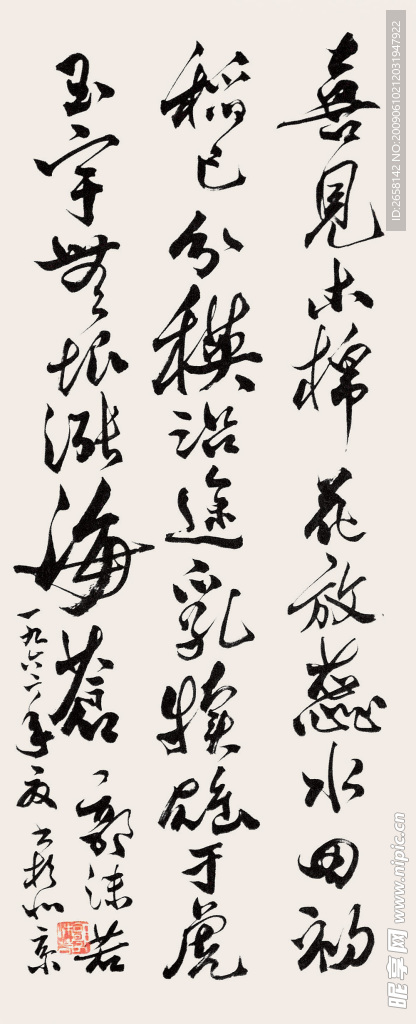 喜見木棉花放蕊水田初
稻已分秧沿途乳犢雄于虎
玉宇無垠漲海蒼
郭沫若
一九六二年夏书於北京
ID:2658142 NO:20090610212031947922
昵享网 www.nipic.cn